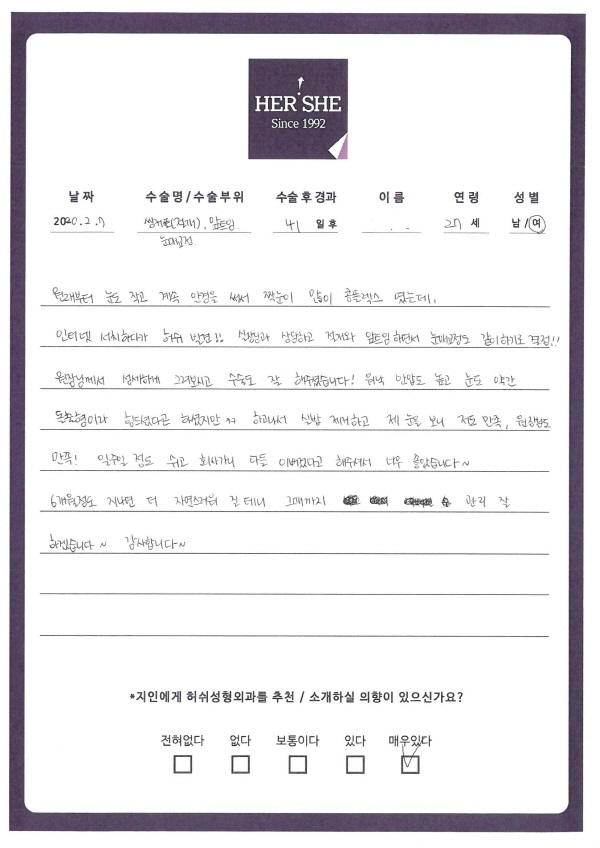 HER SHE
Since 1992
날 짜 수술명 / 수술부위 수술 후 경과 이 름 연 령 성 별
2020.2.7 쌍꺼풀(절개), 앞트임 41 일 후 27 세 남 / 여
눈매교정
원래부터 눈도 작고 계속 안경을 써서 짝눈이 많이 콤플렉스 였는데,
인터넷 서치하다가 허쉬 발견!! 실장님과 상담하고 절개와 앞트임 하면서 눈매교정도 같이하기로 결정!!
원장님께서 섬세하게 그려보시고 수술도 잘 해주셨습니다! 워낙 안압도 높고 눈도 약간
돌출형이라 힘드셨다곤 하셨지만 ㅋㅋ 하고나서 실밥 제거하고 제 눈을 보니 저도 만족, 원장님도
만족! 일주일 정도 쉬고 회사가니 다들 이뻐졌다고 해주셔서 너무 좋았습니다~
6개월정도 지나면 더 자연스러워 질테니 그때까지 관리 잘
하겠습니다~ 감사합니다~
*지인에게 허쉬성형외과를 추천 / 소개하실 의향이 있으신가요?
전혀없다 없다 보통이다 있다 매우있다